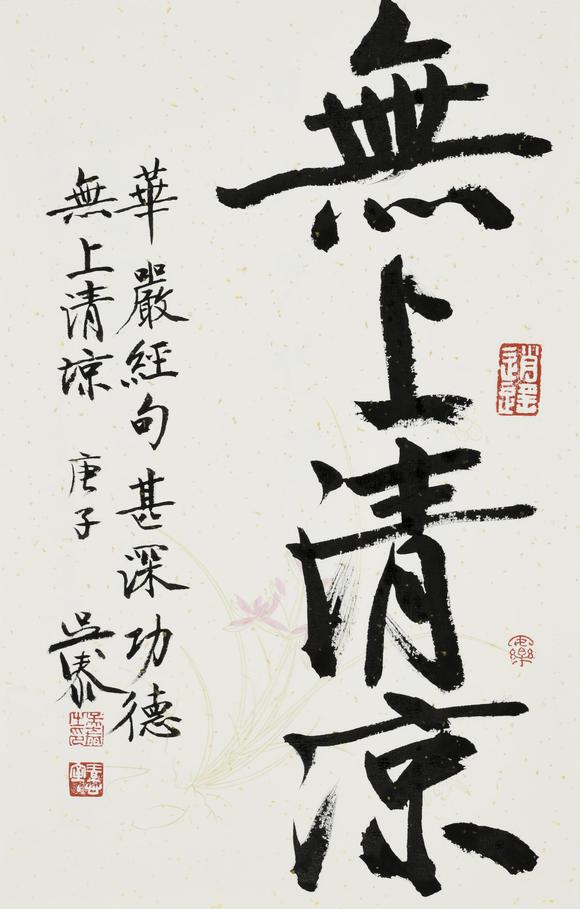 無上清涼
逍遙
華嚴經句甚深功德
無上清涼 庚子 吳泰